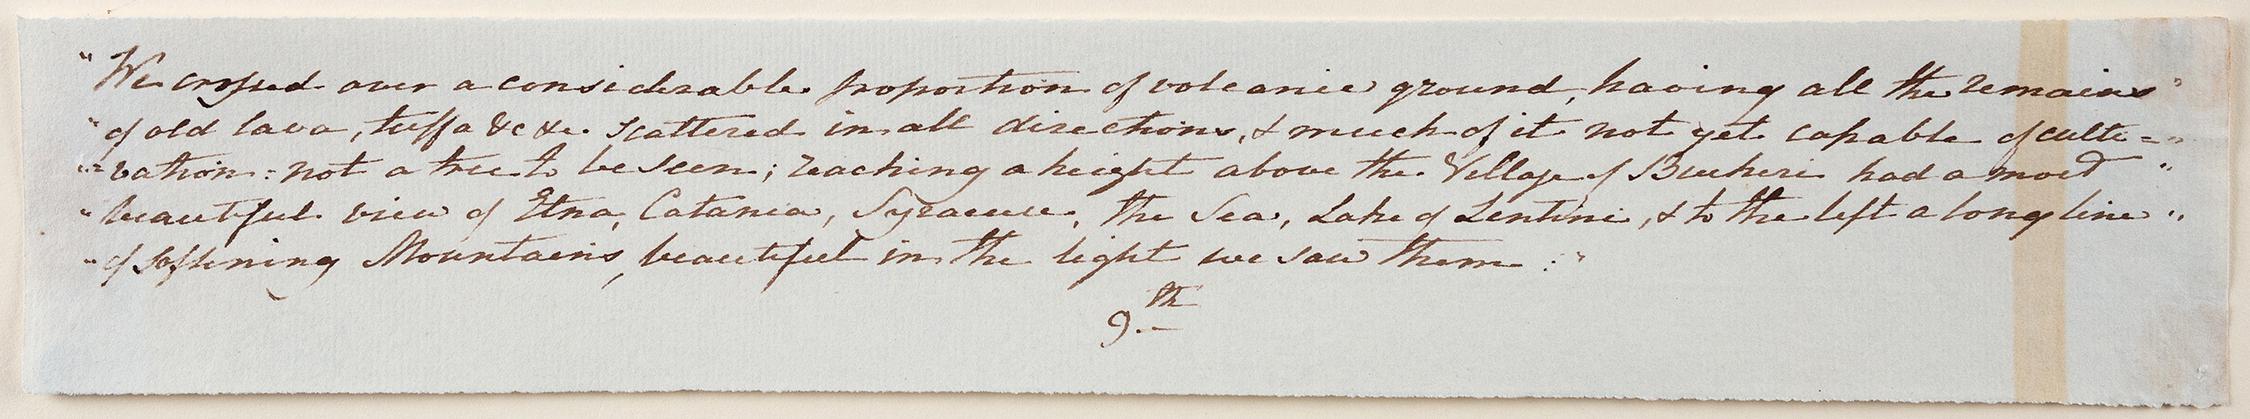 "We crossed over a considerable proportion of volcanic ground, having all the remains"
"of old lava, tuffa &c &c. scattered in all directions, & much of it not yet capable of culti="
"=vation: not a tree to be seen; reaching a height above the Village of Bucheri had a most"
"beautiful view of Etna, Catania, Syracuse, the Sea, Lake of Lentini, & to the left a long line"
"of softening Mountains, beautiful in the light we saw them:"
9.th